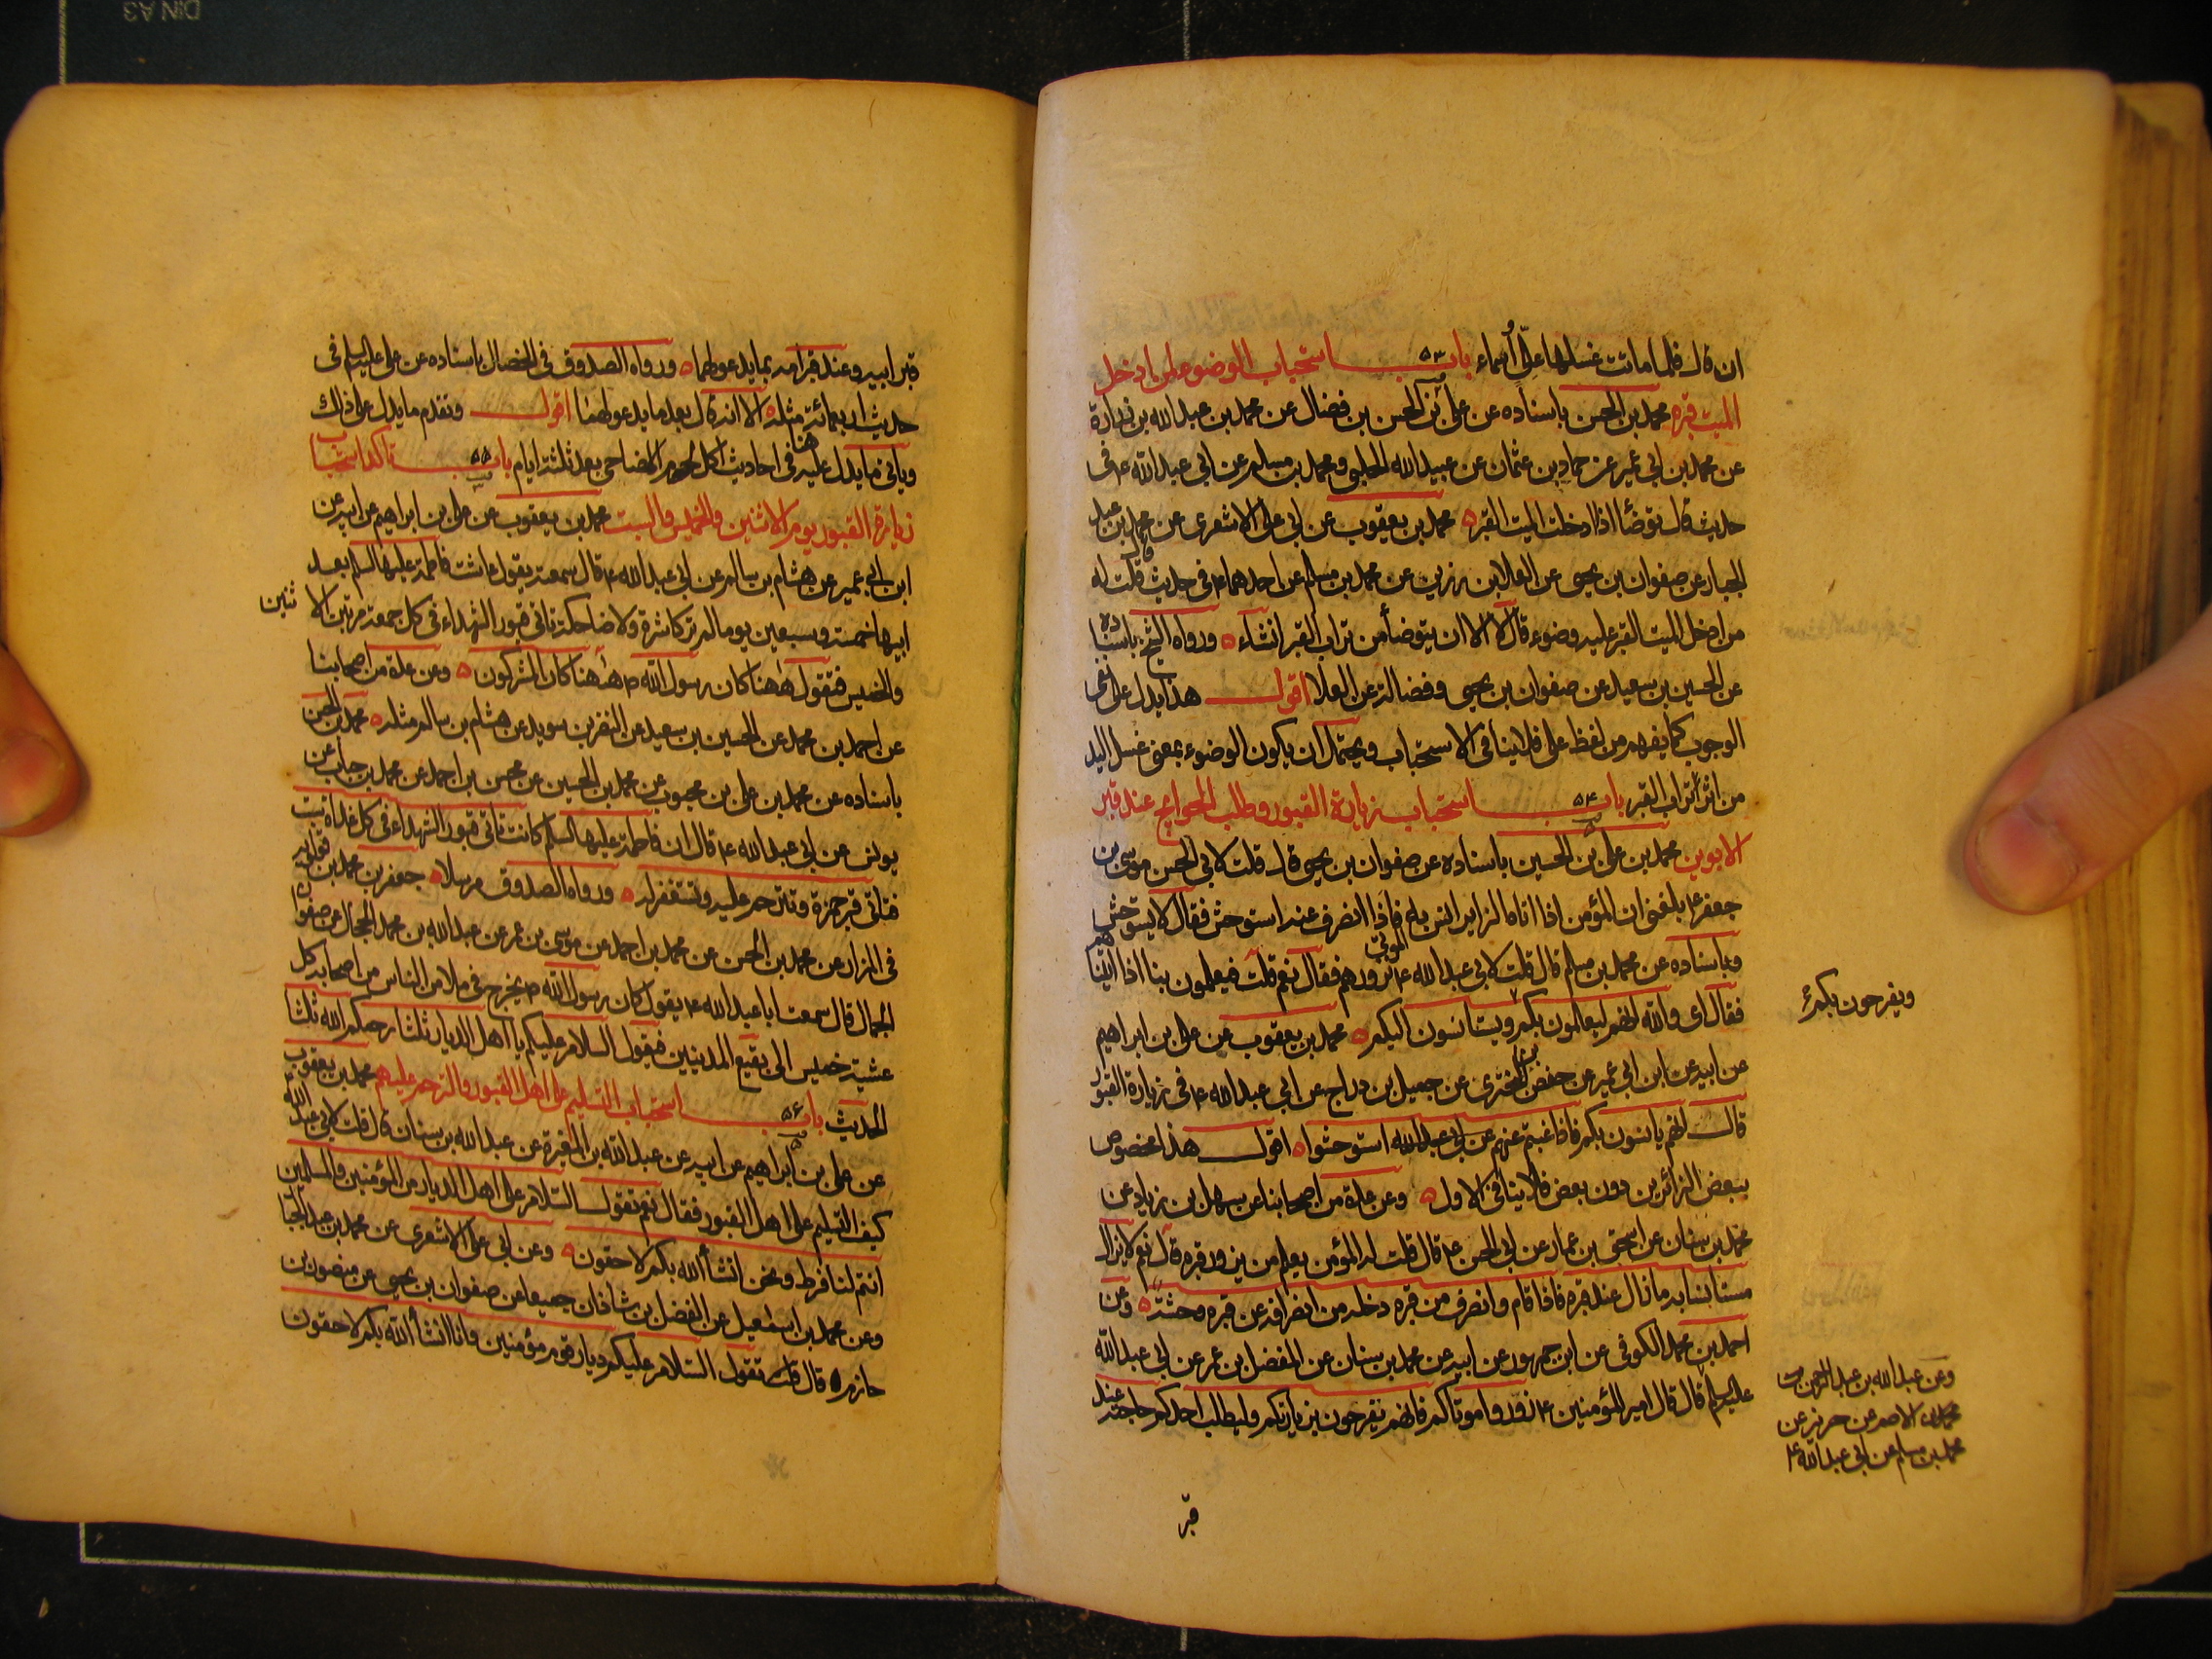 ان قال فلما ماتت غسلها علي و أسماء باب ۵۳ استحباب الوضوء لمن ادخل
الميت قبره محمد بن الحسن باسناده عن علي بن الحسن بن فضال عن محمد بن عبد الله بن زرارة
عن محمد بن ابي عمير عن حماد بن عثمان عن عبيد الله الحلبي و محمد بن مسلم عن ابي عبد الله ع في
حديث قال توضأ اذا ادخلت الميت القبر محمد بن يعقوب عن ابي علي الاشعري عن محمد بن عبد
الجبار عن صفوان بن يحيى عن العلا بن رزين عن محمد بن مسلم عن احدهما ع في حديث قال قلت له
من ادخل الميت القبر عليه وضوء قال لا الا ان يتوضأ من تراب القبر انشاء و رواه الشيخ باسناده
عن الحسين بن سعيد عن صفوان بن يحيى و فضالة عن العلا اقول هذا يدل على نفى
الوجوب كما يفهم من لفظ على فلا ينافى الاستحباب و يحتمل ان يكون الوضوء بمعنى غسل اليد
من اثر تراب القبر باب ۵۴ استحباب زيارة القبور و طلب الحوائج عند قبر
الابوين محمد بن علي بن الحسين باسناده عن صفوان بن يحيى قال قلت لابي الحسن موسى بن
جعفر ع بلغنى ان المؤمن اذا اتاه الزاير انس به فاذا انصرف عنه استوحش فقال لا يستوحش
و باسناده عن محمد بن مسلم قال قلت لابي عبد الله ع الموتى نزورهم فقال نعم قلت فيعلمون بنا اذا اتيناهم
فقال اى و الله انهم ليعلمون بكم و يستانسون اليكم محمد بن يعقوب عن علي بن ابراهيم
و يفرحون بكم
عن ابيه عن ابن ابي عمير عن حفص بن البخترى عن جميل بن دراج عن ابي عبد الله ع في زيارة القبور
قال انهم يانسون بكم فاذا غبتم عنهم عن ابي عبد الله استوحشوا اقول هذا مخصوص
ببعض الزائرين دون بعض فلا ينافى الاول و عن عدة من اصحابنا عن سهل بن زياد عن
محمد بن سنان عن اسحق بن عمار عن ابي الحسن ع قال قلت له المؤمن يعلم من يزور قبره قال نعم لا يزال
مستانسا به ما زال عند قبره فاذا قام و انصرف من قبره دخله من انصرافه عن قبره وحشة و عن
احمد بن محمد الكوفى عن ابن جمهور عن ابيه عن محمد بن سنان عن المفضل بن عمر عن ابي عبد الله
عليه السلام قال قال امير المؤمنين ع زوروا موتاكم فانهم يفرحون بزيارتكم و ليطلب احدكم حاجته عند
و عن عبد الله بن عبد الرحمن
محمد بن الاصم عن حريز عن
محمد بن مسلم عن ابي عبد الله ع
قبر
قبر ابيه و عند قبر امه بما يدعو لهما و رواه الصدوق فى الخصال باسناده عن علي عليه السلم فى
حديث اربعمائة مثله الا انه قال بعد ما يدعو لهما اقول و تقدم ما يدل على ذلك
و ياتى ما يدل عليه هنا فى احاديث اكل لحوم الاضاحى بعد ثلثة ايام باب ۵۵ تاكد استحباب
زيارة القبور يوم الاثنين و الخميس و السبت محمد بن يعقوب عن علي بن ابراهيم عن ابيه عن
ابن ابي عمير عن هشام بن سالم عن ابي عبد الله ع قال سمعته يقول عاشت فاطمة عليها السلم بعد
ابيها خمسة و سبعين يوما لم تر كاشرة و لا ضاحكة تاتى قبور الشهداء فى كل جمعة مرتين الا ثنين
و الخميس فتقول ههنا كان رسول الله ص ههنا كان المشركون و عن عدة من اصحابنا
عن احمد بن محمد عن الحسين بن سعيد عن النضر بن سويد عن هشام بن سالم مثله محمد بن الحسن
باسناده عن محمد بن علي بن محبوب عن محمد بن الحسين عن محسن بن احمد عن محمد بن جناب عن
يونس عن ابي عبد الله ع قال ان فاطمة عليها السلم كانت تاتى قبور الشهداء فى كل غداة سبت
فتاتى قبر حمزة و تترحم عليه و تستغفر له و رواه الصدوق مرسلا جعفر بن محمد بن قولويه
فى المزار عن محمد بن الحسن عن محمد بن احمد عن موسى بن عمر عن عبد الله بن محمد الحجال عن صفوان
الجمال قال سمعت ابا عبد الله ع يقول كان رسول الله ص يخرج فى ملا من الناس من اصحابه كل
عشية خميس الى بقيع المدينيين فيقول السلام عليكم يا اهل الديار ثلثا رحمكم الله ثلثا
الحديث باب ۵۶ استحباب التسليم على اهل القبور و الترحم عليهم محمد بن يعقوب
عن علي بن ابراهيم عن ابيه عن عبد الله بن المغيرة عن عبد الله بن سنان قال قلت لابي عبد الله
كيف التسليم على اهل القبور فقال نعم تقول السلام على اهل الديار من المؤمنين و المسلمين
انتم لنا فرط و نحن انشأ الله بكم لاحقون و عن ابي علي الاشعرى عن محمد بن عبد الجبار
و عن محمد بن اسمعيل عن الفضل بن شاذان جميعا عن صفوان بن يحيى عن منصور بن
حازم قال قلت تقول السلام عليكم ديار قوم مؤمنين و انا انشأ الله بكم لاحقون